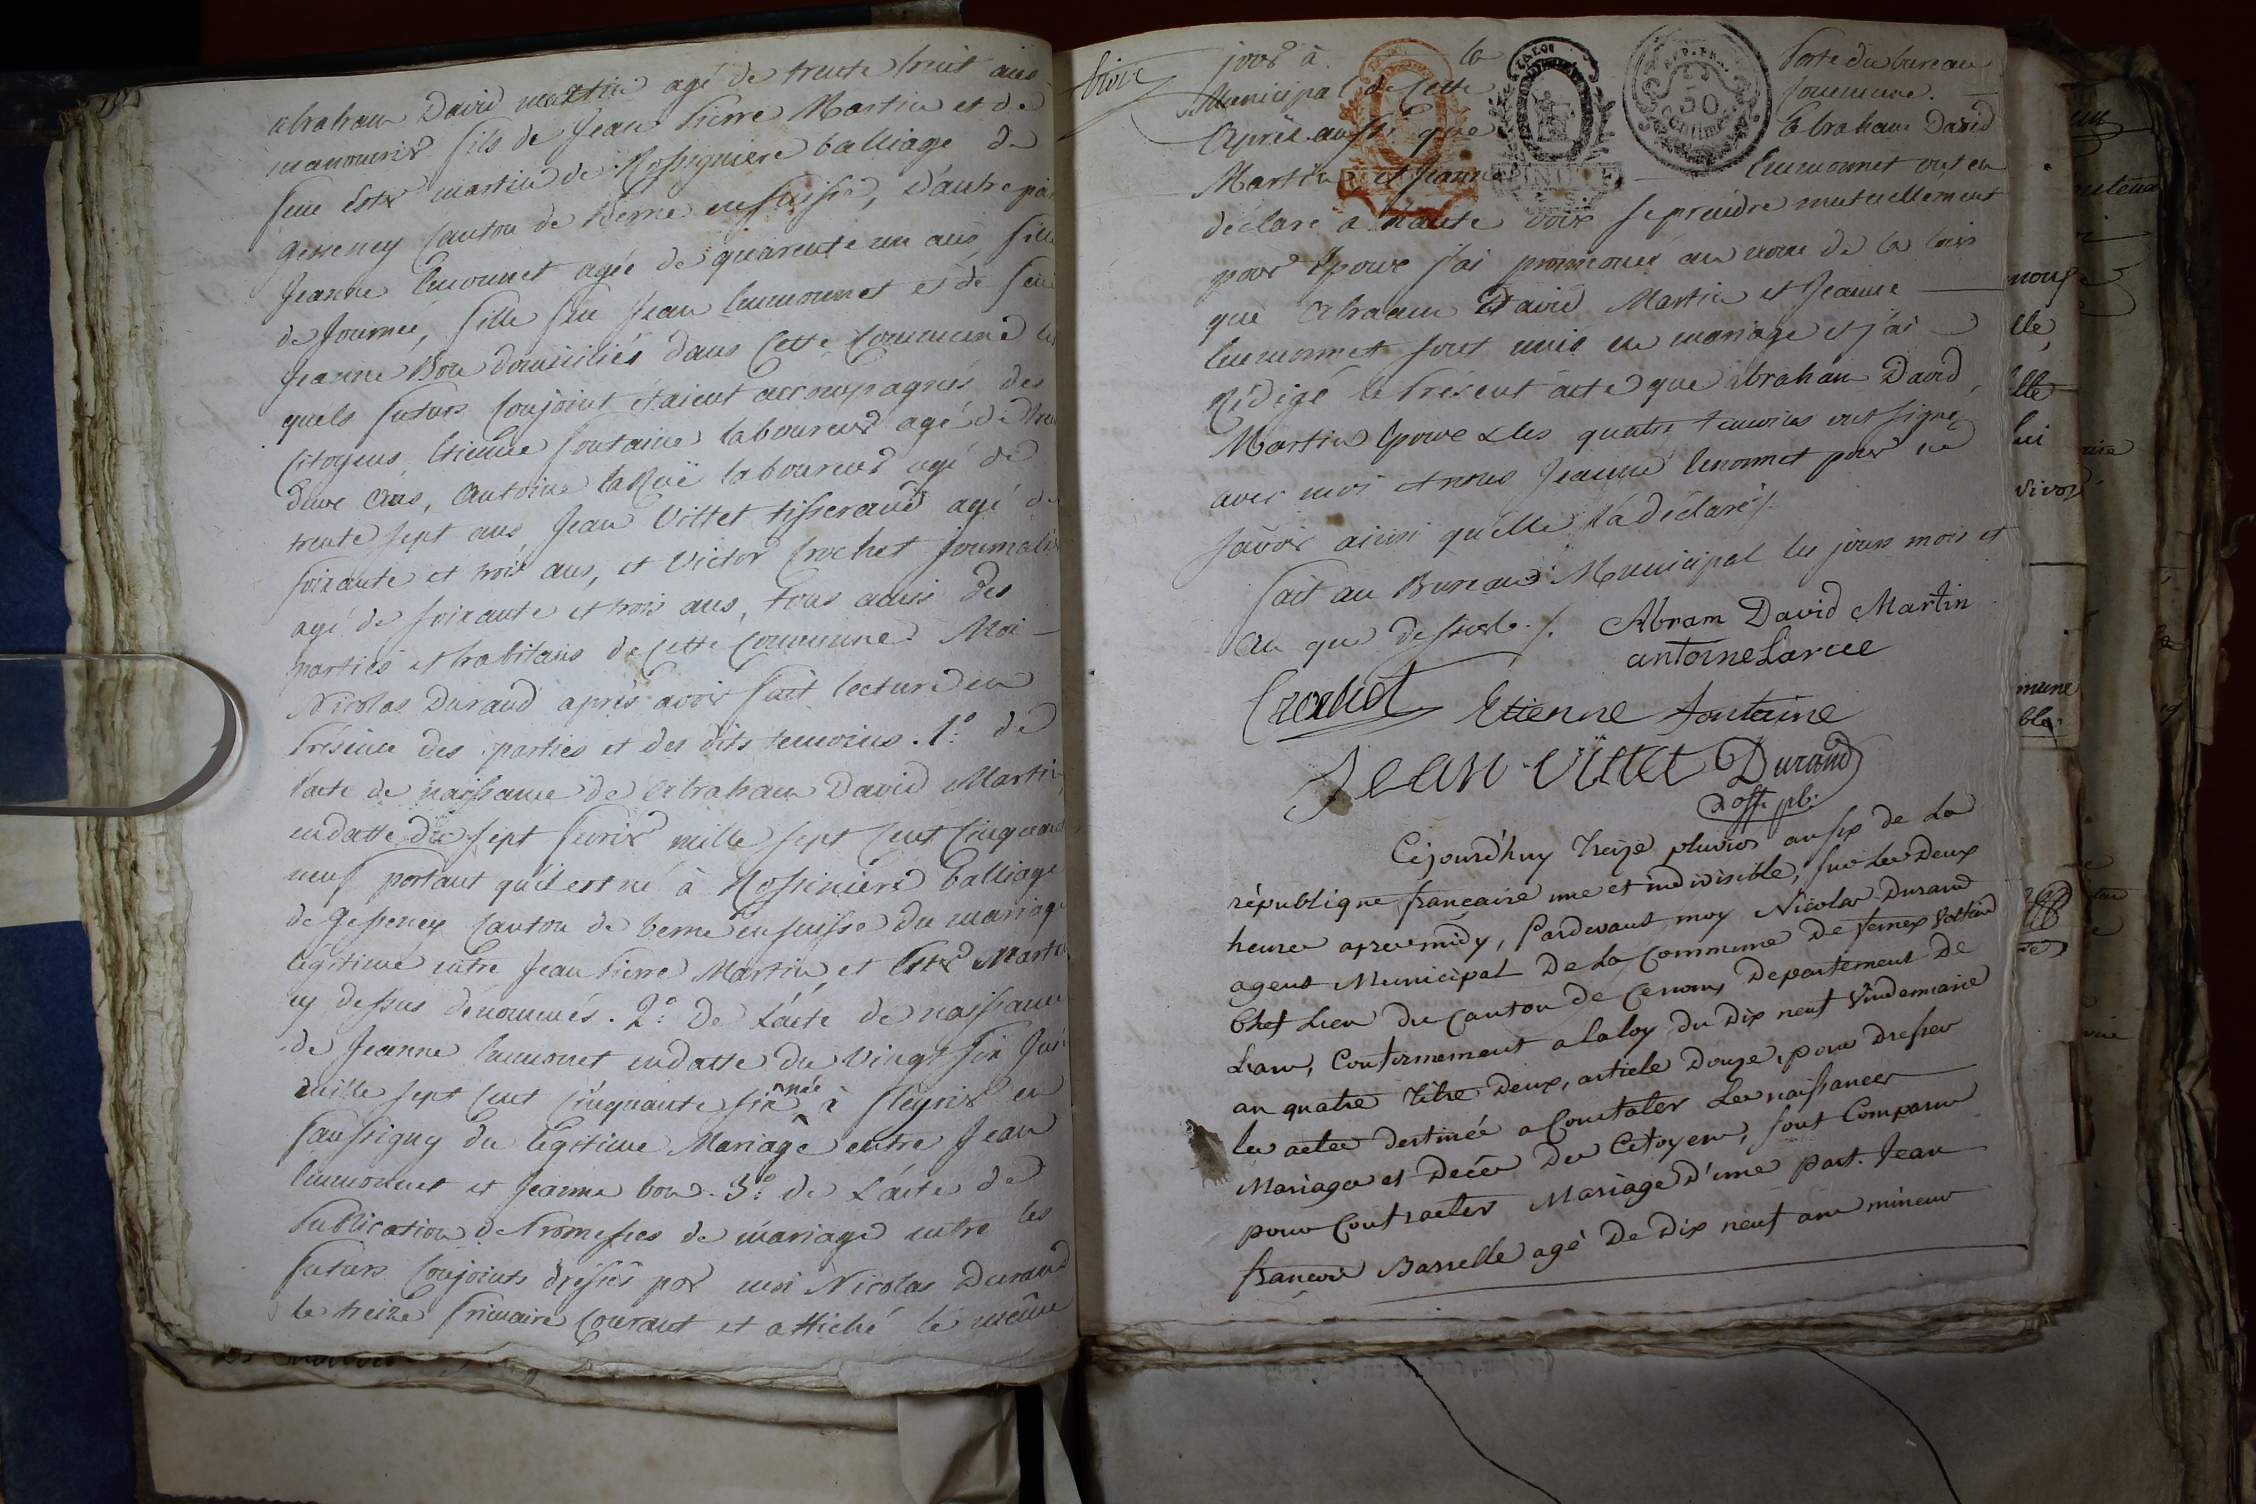 abraham David martin agé de trente huit ans
manouvrier fils de Jean Pierre Martin et de
feue Ester martin de Rossigniere balliage de
gesseney Canton de Berne en suisse, d'autre par
Jeanne Cumonnet agée de quarente un ans fille
de Journée, fille feu Jean Cumonnet et de feue
Jeanne Bou domiciliés dans Cette Commune les
quels futurs Conjoint étaient accompagnés des
Citoyens, Etienne fontaine laboureur agé de tren
deux ans, Antoine laRüe laboureur agé de
trente sept ans, Jean Vittet tisserand agé de
soixante et trois ans, et Victor Crochet Journalie
agé de soixante et trois ans, tous amis des
parties et habitans de Cette Commune. Moi
Nicolas Durand après avoir fait lecture en
Présence des parties et des dits temoins. 1.° de
l'acte de naissance de Abraham David Martin,
en datte du sept fevrier mille sept Cent Cinquante
neuf portant qu'il est né à Rossiniére balliage
de Gesseney Canton de berne en suisse du mariage
légitime entre Jean Pierre Martin, et Ester Martin
cy dessus dénommés. 2.° De L'acte de naissance
de Jeanne Cumonnet en datte du Vingt six Jui
mille sept Cent Cinquante six née à fleyrier en
faussigny du legitime Mariage entre Jean
Cumonnet et Jeanne bou. 3.° de L'acte de
Publication de Promesses de mariage entre les
futurs Conjoints dressés par moi Nicolas Durand
le treize frimaire Courant et affiché le même
jour à la Porte du bureau
Municipal de Cette Commune.
Après aussi que Abraham David
Martin et Jeanne Cumonnet ont en
déclaré a haute voix se prendre mutuellement
pour Epoux j'ai prononcé au nom de la loix
que Abraam David Martin et Jeanne
Cumonnet sont unis en mariage et j'ai
Rédigé le Présent acte que abraham David
Martin Epoux & les quatre temoins ont signé
avec moi et non Jeanne Cumonnet pour ne
savoir ainsi quelle l'a déclaré /.
fait au Bureau Municipal les jours mois et
An que dessus /. Abram David Martin
antoine Larue
Crochet Etienne fontaine
JEAN VITTET Durand
off. pb.
Cejourd'huy treize pluvios an six de La
république française une et indivisible, sur Les Deux
heures apres midy, Pardevant moy Nicolas Durand
agent Municipal De La Commune De fernex Voltaire
Chef Lieu du Canton de Ce nom, Departement De
Lain, Conformement a La loy du Dix neuf Vindemiaire
an quatre titre Deux, article Douze, pour Dresser
les actes destinée a Constater Les naissances
Mariages et Decès Des Citoyens, sont Comparus
pour Contracter Mariage D'une part Jean
françois Basselle agé De Dix neuf ans mineur